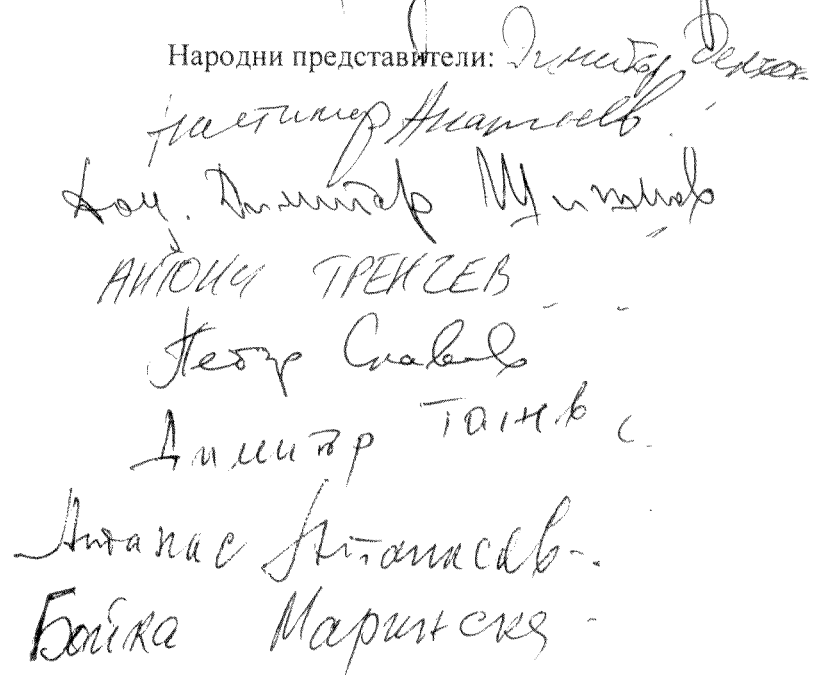 Народни представители: Димитър Делчев
Мартин Димитров
Доц. Димитър Шишков
АНТОНИ ТРЕНЧЕВ
Петър Славов
Димитър Танев
Атанас Атанасов
Бойка Маринска